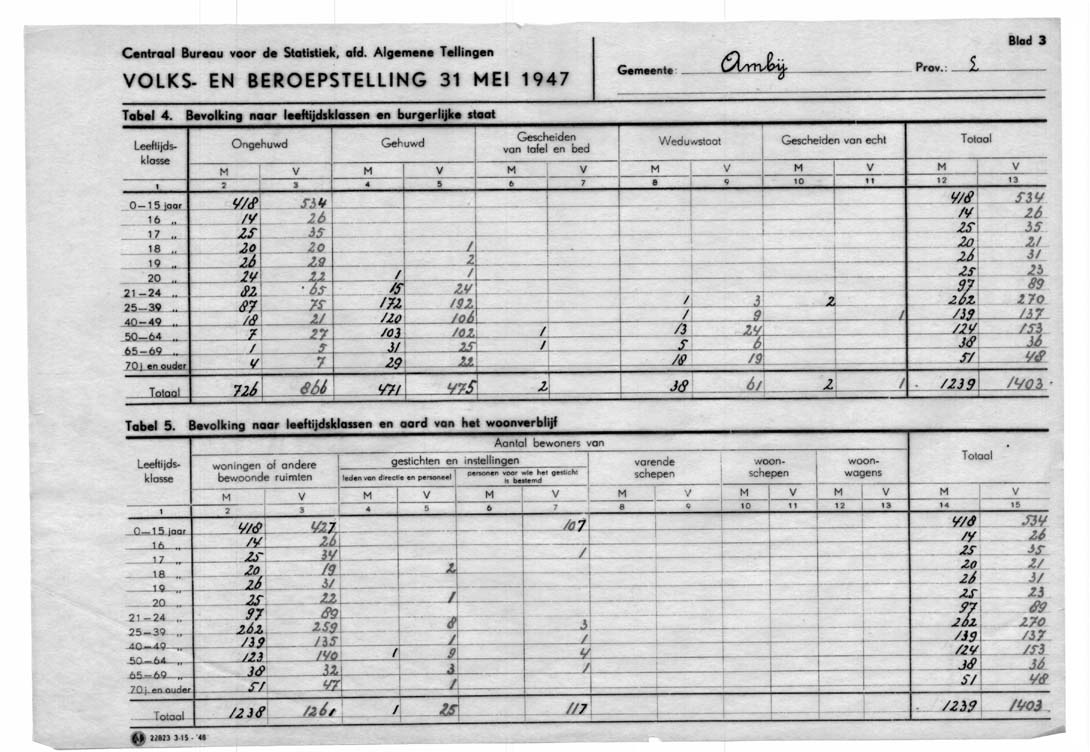 Blad 3
Centraal Bureau voor de Statistiek, afd. Algemene Tellingen
VOLKS- EN BEROEPSTELLING 31 MEI 1947
Gemeente: Amby Prov.: L
Tabel 4. Bevolking naar leeftijdsklassen en burgerlijke staat
Leeftijds-klasse Ongehuwd Gehuwd Gescheiden van tafel en bed Weduwstaat Gescheiden van echt Totaal
M V M V M V M V M V M V
1 2 3 4 5 6 7 8 9 10 11 12 13
0—15 jaar 418 534 418 534
16 „ 14 26 14 26
17 „ 25 35 25 35
18 „ 20 20 1 20 21
19 „ 26 29 2 26 31
20 „ 24 22 1 1 25 23
21—24 „ 82 65 15 24 97 89
25—39 „ 87 75 172 192 1 3 2 262 270
40—49 „ 18 21 120 106 1 9 1 139 137
50—64 „ 7 27 103 102 1 13 24 124 153
65—69 „ 1 5 31 25 1 5 6 38 36
70 j. en ouder 4 7 29 22 18 19 51 48
Totaal 726 866 471 475 2 38 61 2 1 1239 1403
Tabel 5. Bevolking naar leeftijdsklassen en aard van het woonverblijf
Aantal bewoners van
Leeftijds-klasse woningen of andere bewoonde ruimten gestichten en instellingen varende schepen woon-schepen woon-wagens Totaal
leden van directie en personeel personen voor wie het gesticht is bestemd
M V M V M V M V M V M V M V
1 2 3 4 5 6 7 8 9 10 11 12 13 14 15
0—15 jaar 418 427 107 418 534
16 „ 14 26 14 26
17 „ 25 34 1 25 35
18 „ 20 19 2 20 21
19 „ 26 31 26 31
20 „ 25 22 1 25 23
21—24 „ 97 89 97 89
25—39 „ 262 259 8 3 262 270
40—49 „ 139 135 1 1 139 137
50—64 „ 123 140 1 9 4 124 153
65—69 „ 38 32 3 1 38 36
70 j. en ouder 51 47 1 51 48
Totaal 1238 1261 1 25 117 1239 1403
22823 3-15 - '48